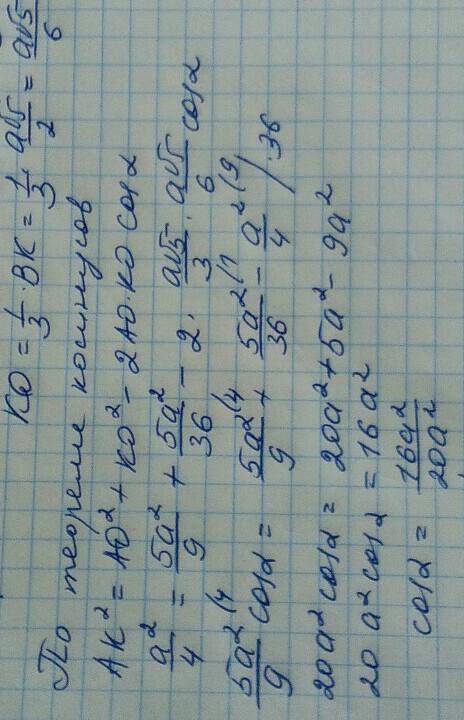 KO = 1/3 · BK = 1/3 · a√5/2 = a√5/6
По теореме косинусов
AK² = AO² + KO² - 2AO·KO cos α
a²/4 = 5a²/9 + 5a²/36 - 2 · a√5/3 · a√5/6 cos α
5a²/9 (4 cos α = 5a²/9 (4 + 5a²/36 (1 - a²/4 (9 / · 36
20a² cos α = 20a² + 5a² - 9a²
20a² cos α = 16a²
cos α = 16a²/20a²